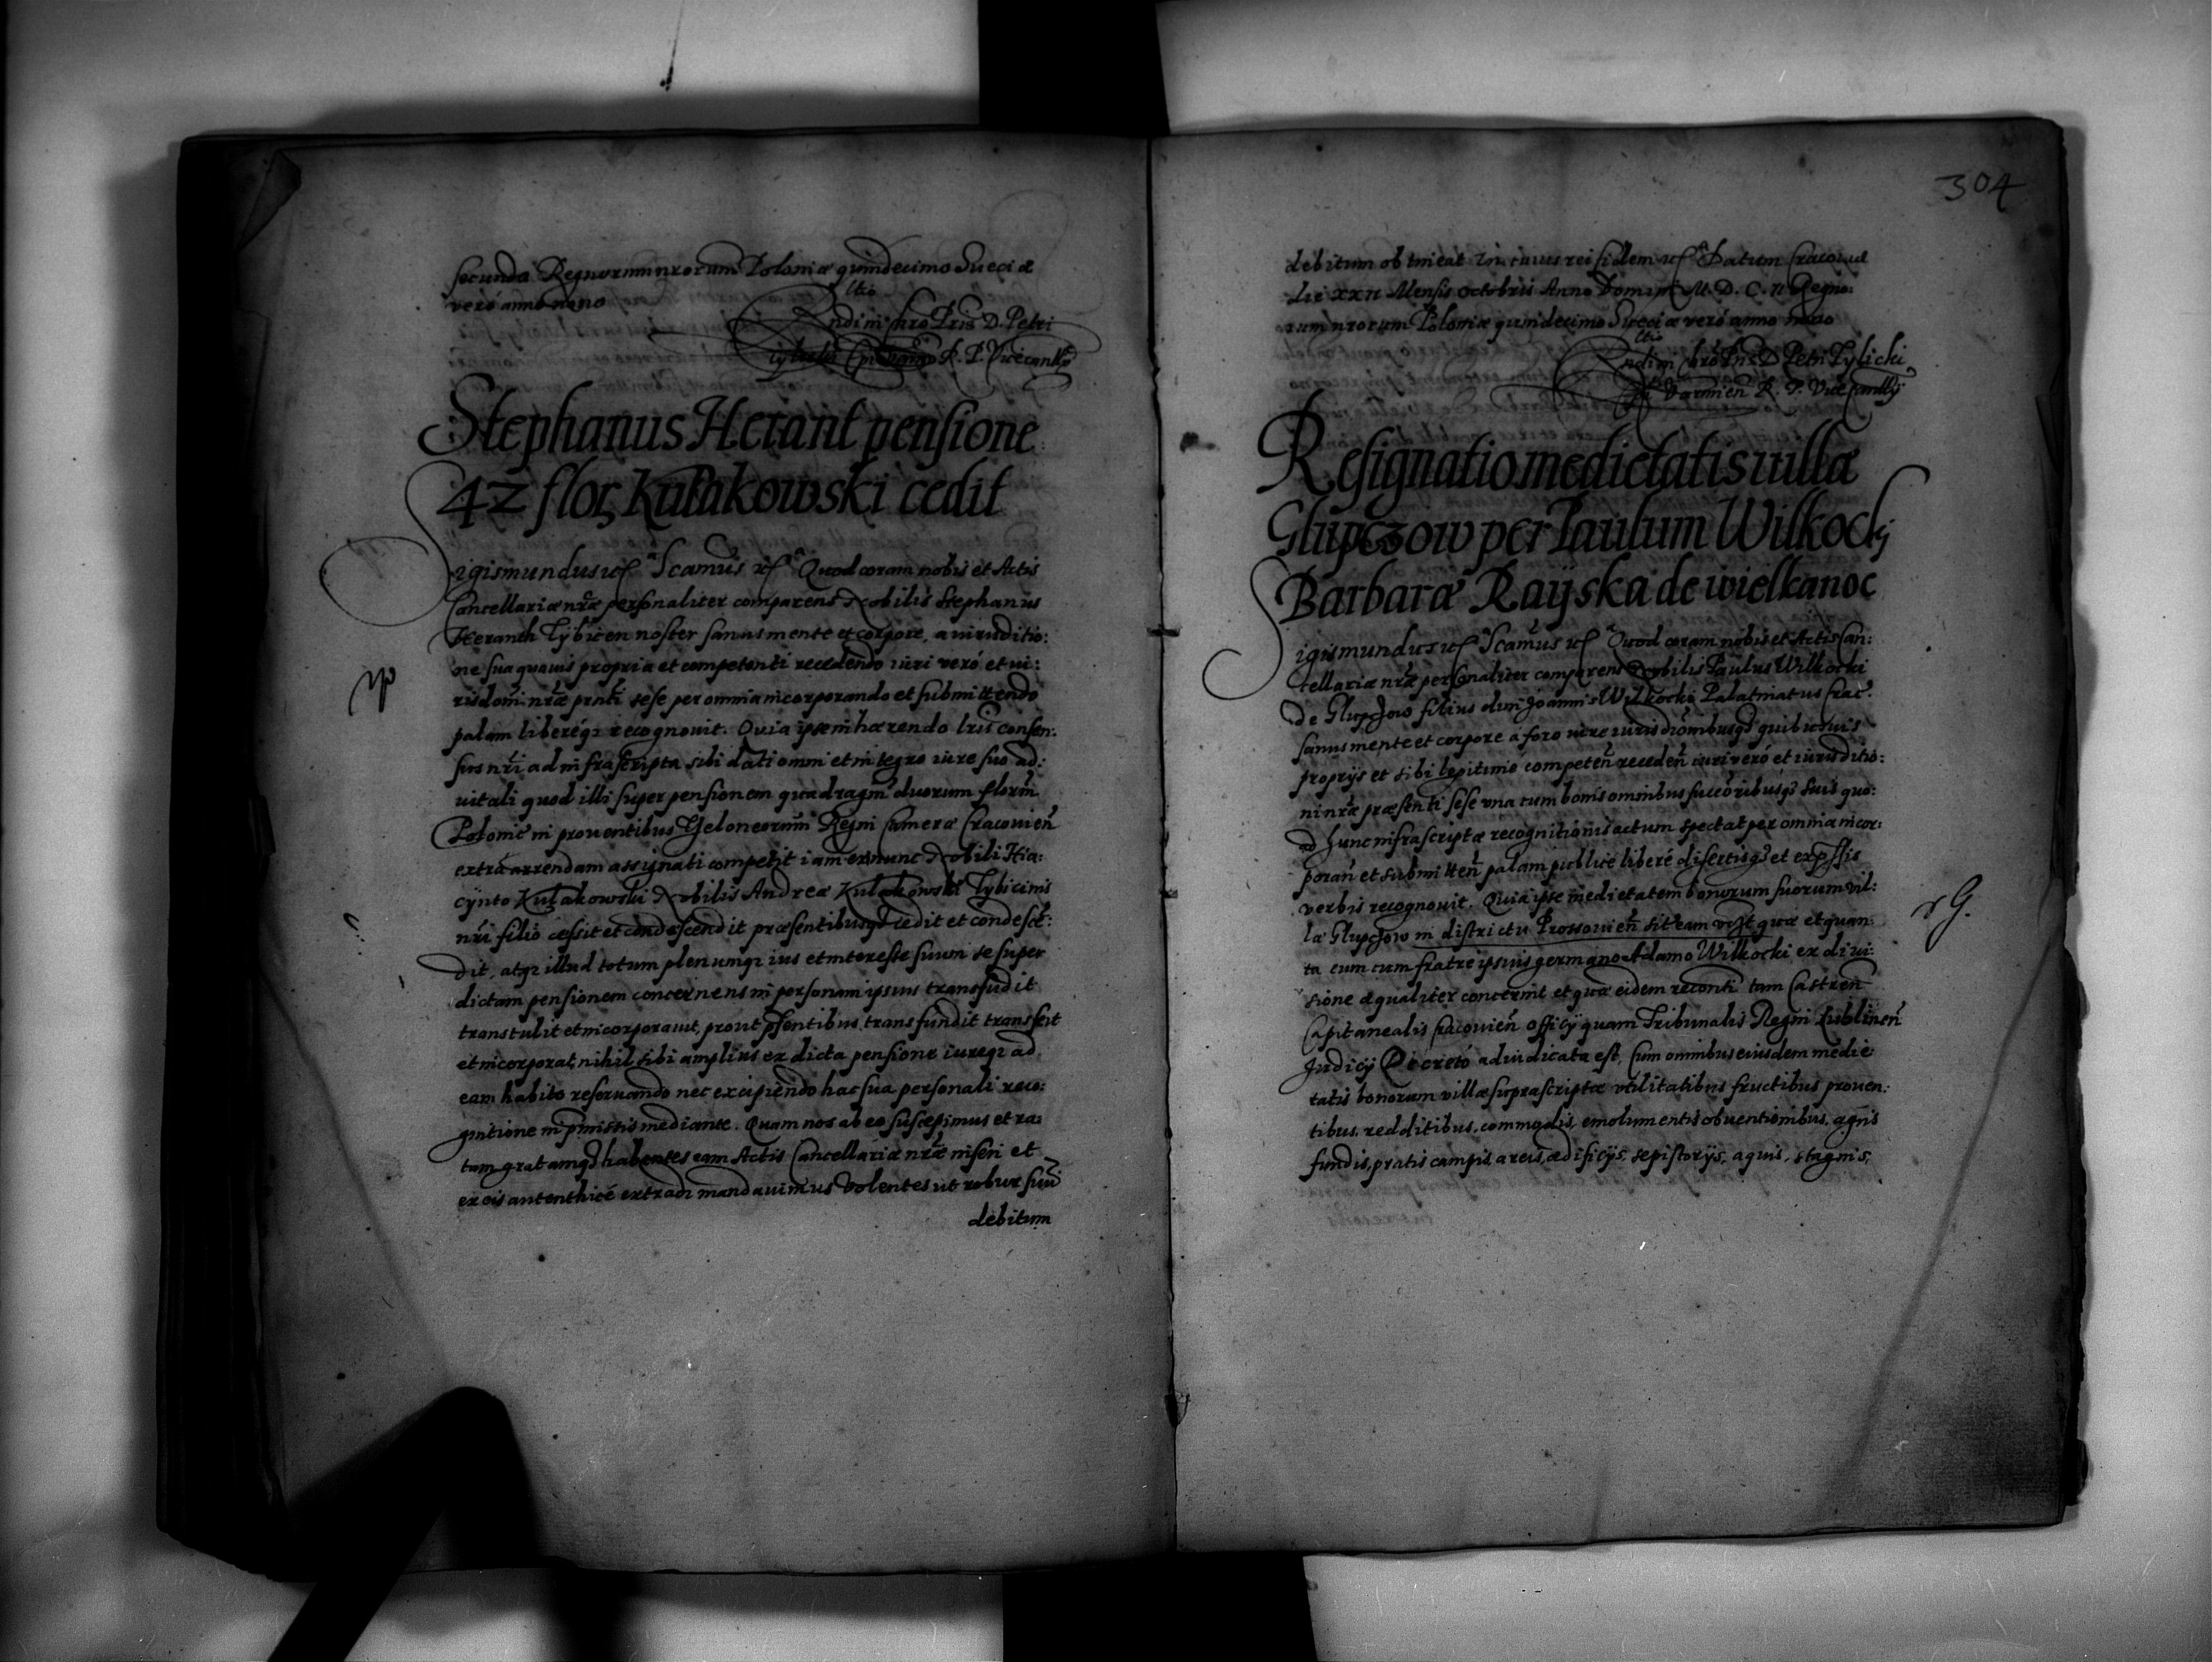 secunda Regnorum nrorum Poloniæ quindecimo Sueciæ
vero anno nono
ltio
Rndi in Chro Pris D. Petri
R. P. Vicecanllr
Stephanus Herant pensione
42 flor Kułakowski cedit
Sigismundus etc Scamus etc Quod coram nobis et Actis
Cancellariæ nræ personaliter comparens Nobilis Stephanus
Heranth Tybicen noster sanus mente et corpore, a iurisditio:
ne sua quauis propria et competenti recedendo iuri vero et iu:
risdoni nræ prnti sese per omnia incorporando et submittendo
palam libereq recognouit. Quia ipse inhærendo lris consen:
sus nri ad infrascripta sibi dati omni et integro iure suo ad:
uitali quod illi super pensionem quadragin duorum florin
Polonic in prouentibus Regni Cameræ Cracouien
extra arrendam assignati competit iam exnunc Nobili Hia:
cynto Kułakowski Nobilis Andreæ Kułakowski Tybicinis
nri filio cessit et condescendit præsentibusq cedit et condescen:
dit, atq illud totum plenumq ius et interesse suum se super
dictam pensionem concernens in personam ipsius transfudit
transtulit et incorporauit, prout psentibus transfundit transfert
et incorporat, nihil sibi amplius ex dicta pensione iureq ad
eam habito reseruando nec excipiendo hac sua personali reco:
gnitione in pmissis mediante. Quam nos ab eo suscepimus et ra:
tam gratamq habentes eam Actis Cancellariæ nræ inseri et
ex eis autenthice extradi mandauimus volentes ut robur suu
debitum
304
debitum obtineat In cuius rei fidem etc Datum Cracouiæ
die XXII Mensis octobris Anno Domini M. D. C. II Regno:
rum nrorum Poloniæ quindecimo Sueciæ vero anno nono
ltio
Rndi in Chro Pris D Petri Tylicki
Varmien R. P. Vicecanllrij
Resignatio medietatis uillæ
Glupczow per Paulum Wilkocki
Barbaræ Rayska de wielkanoc
Sigismundus etc Scamus etc Quod coram nobis et Actis Can:
cellariæ nræ personaliter comparens Nobilis Paulus Wilkocki
de Glupczow filius olim Joannis Wilkocki Palatinatus Crac.
sanus mente et corpore a foro iure iurisdionibusq quibusuis
proprijs et sibi legitime competen receden iuri vero et iurisditio:
ni nræ præsenti sese vna cum bonis omnibus succoribusq suis quo:
ad hunc infrascriptæ recognitionis actum spectat per omnia incor:
poran et submitten palam publice libere disertisq et expssis
verbis recognouit. Quia ipse medietatem bonorum suorum vil:
læ Glupczow in districtu Prossouien sitam quæ et quan:
ta eum cum fratre ipsius germano Adamo Wilkocki ex diui:
sione æqualiter concernit et quæ eidem tam Castren
Capitanealis Cracouien officij quam Tribunalis Regni Lublinen
Judicij Decreto adiudicata est, Cum omnibus eiusdem medie:
tatis bonorum villæ suprascriptæ vtilitatibus fructibus prouen:
tibus, redditibus, commodis, emolumentis obuentionibus, agris
fundis, pratis campis, areis, ædificijs, sepistorijs, aquis, stagnis,